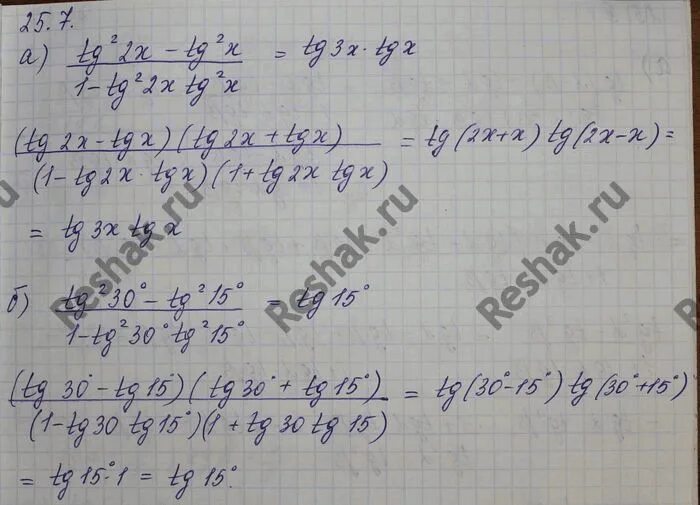 25.7.
а) tg²2x − tg²x / 1 − tg²2x tg²x = tg3x · tgx
(tg2x − tgx)(tg2x + tgx) / (1 − tg2x · tgx)(1 + tg2x tgx) = tg(2x+x) tg(2x−x) =
= tg3x tgx
б) tg²30° − tg²15° / 1 − tg²30° tg²15° = tg15°
(tg 30° − tg15°)(tg30° + tg15°) / (1 − tg30 tg15°)(1 + tg30 tg15) = tg(30°−15°) tg(30°+15°)
= tg15° · 1 = tg15°.
Reshak.ru
Reshak.ru
Reshak.ru